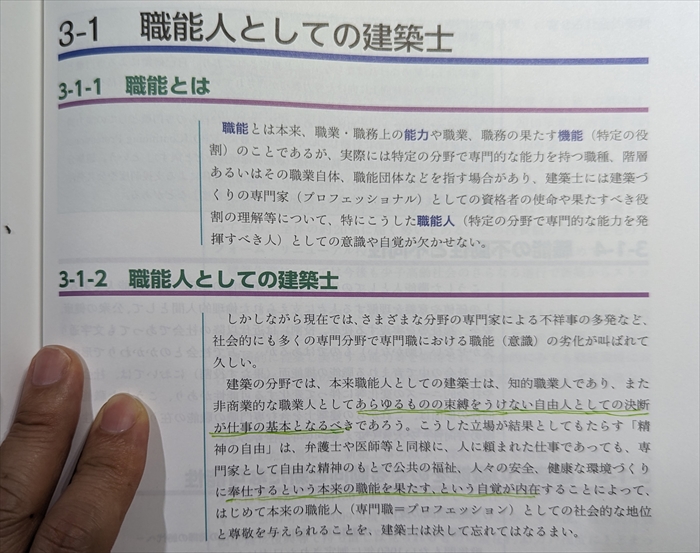 3-1 職能人としての建築士
3-1-1 職能とは
職能とは本来、職業・職務上の能力や職業、職務の果たす機能（特定の役
割）のことであるが、実際には特定の分野で専門的な能力を持つ職種、階層
あるいはその職業自体、職能団体などを指す場合があり、建築士には建築づ
くりの専門家（プロフェッショナル）としての資格者の使命や果たすべき役
割の理解等について、特にこうした職能人（特定の分野で専門的な能力を発
揮すべき人）としての意識や自覚が欠かせない。
3-1-2 職能人としての建築士
しかしながら現在では、さまざまな分野の専門家による不祥事の多発など、
社会的にも多くの専門分野で専門職における職能（意識）の劣化が叫ばれて
久しい。
建築の分野では、本来職能人としての建築士は、知的職業人であり、また
非商業的な職業人としてあらゆるものの束縛をうけない自由人としての決断
が仕事の基本となるべきであろう。こうした立場が結果としてもたらす「精
神の自由」は、弁護士や医師等と同様に、人に頼まれた仕事であっても、専
門家として自由な精神のもとで公共の福祉、人々の安全、健康な環境づくり
に奉仕するという本来の職能を果たす、という自覚が内在することによって、
はじめて本来の職能人（専門職＝プロフェッション）としての社会的な地位
と尊敬を与えられることを、建築士は決して忘れてはなるまい。